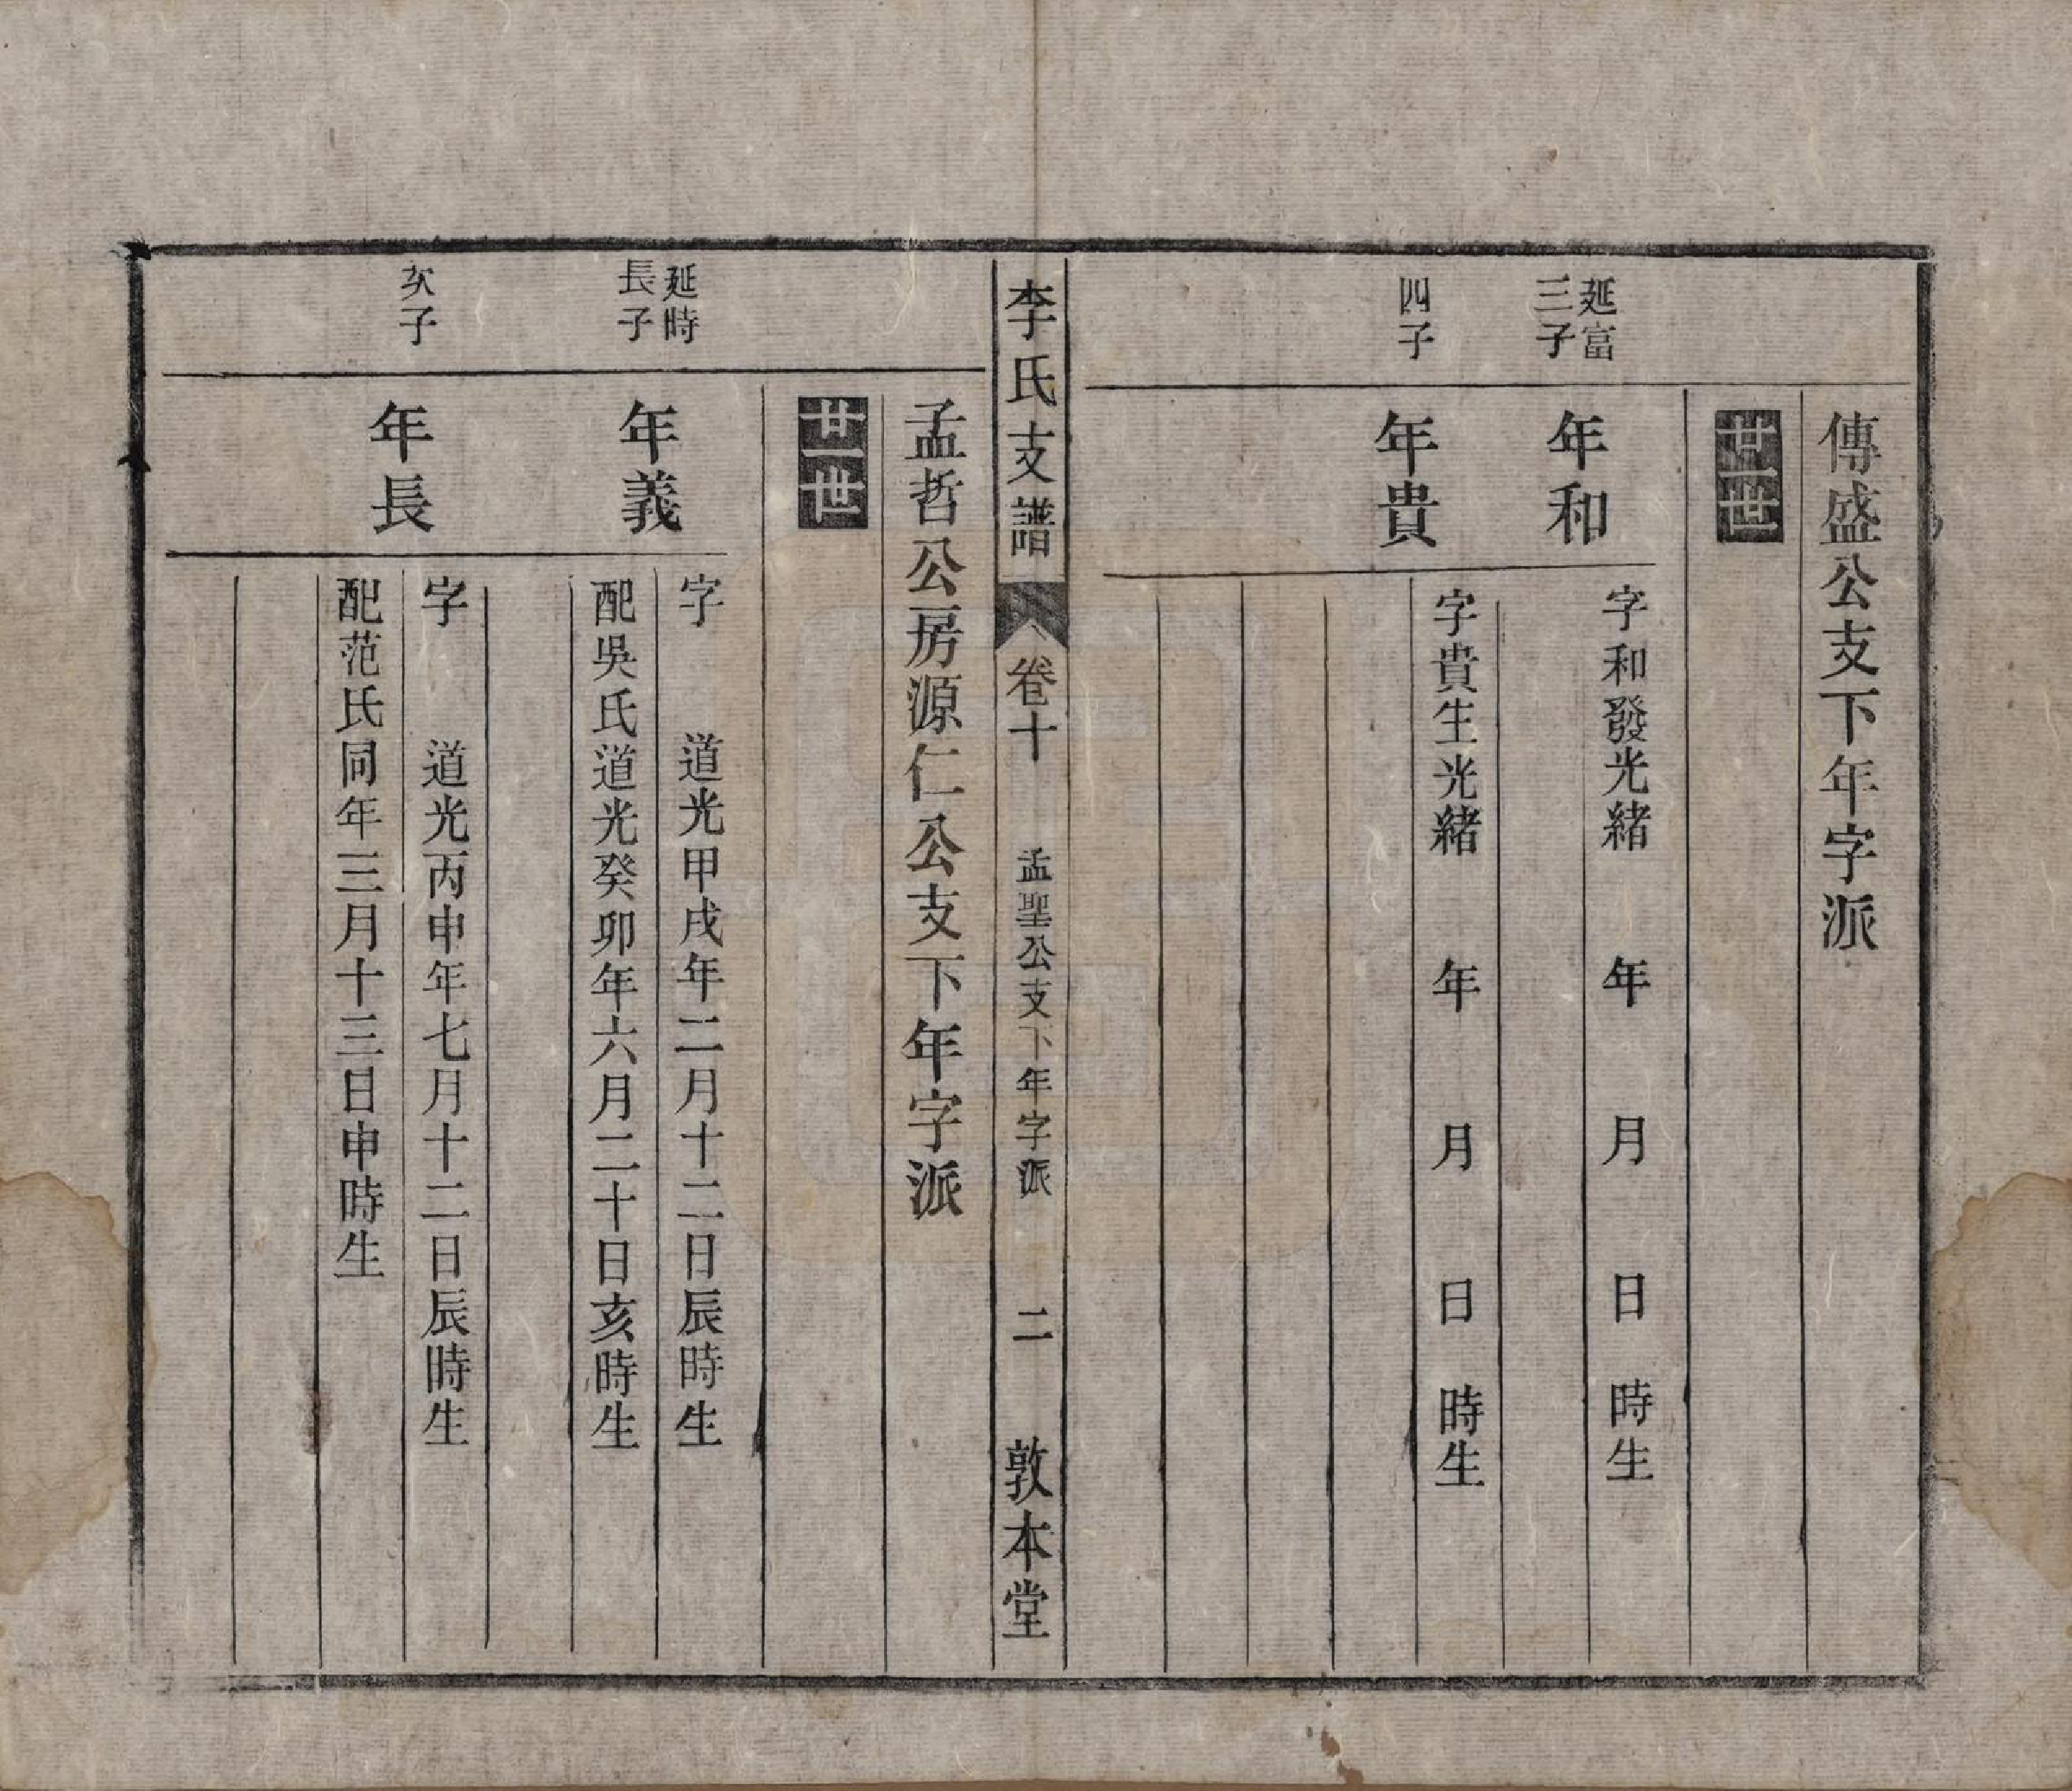 傳盛公支下年字派
廿一世
延富
三子
年和
字和發光緒 年 月 日 時生
四子
年貴
字貴生光緒 年 月 日 時生
李氏支譜 卷十 孟聖公支下年字派 二 敦本堂
孟哲公房源仁公支下年字派
廿一世
延時
長子
年義
字 道光甲戌年二月十二日辰時生
配吳氏道光癸卯年六月二十日亥時生
次子
年長
字 道光丙申年七月十二日辰時生
配范氏同年三月十三日申時生